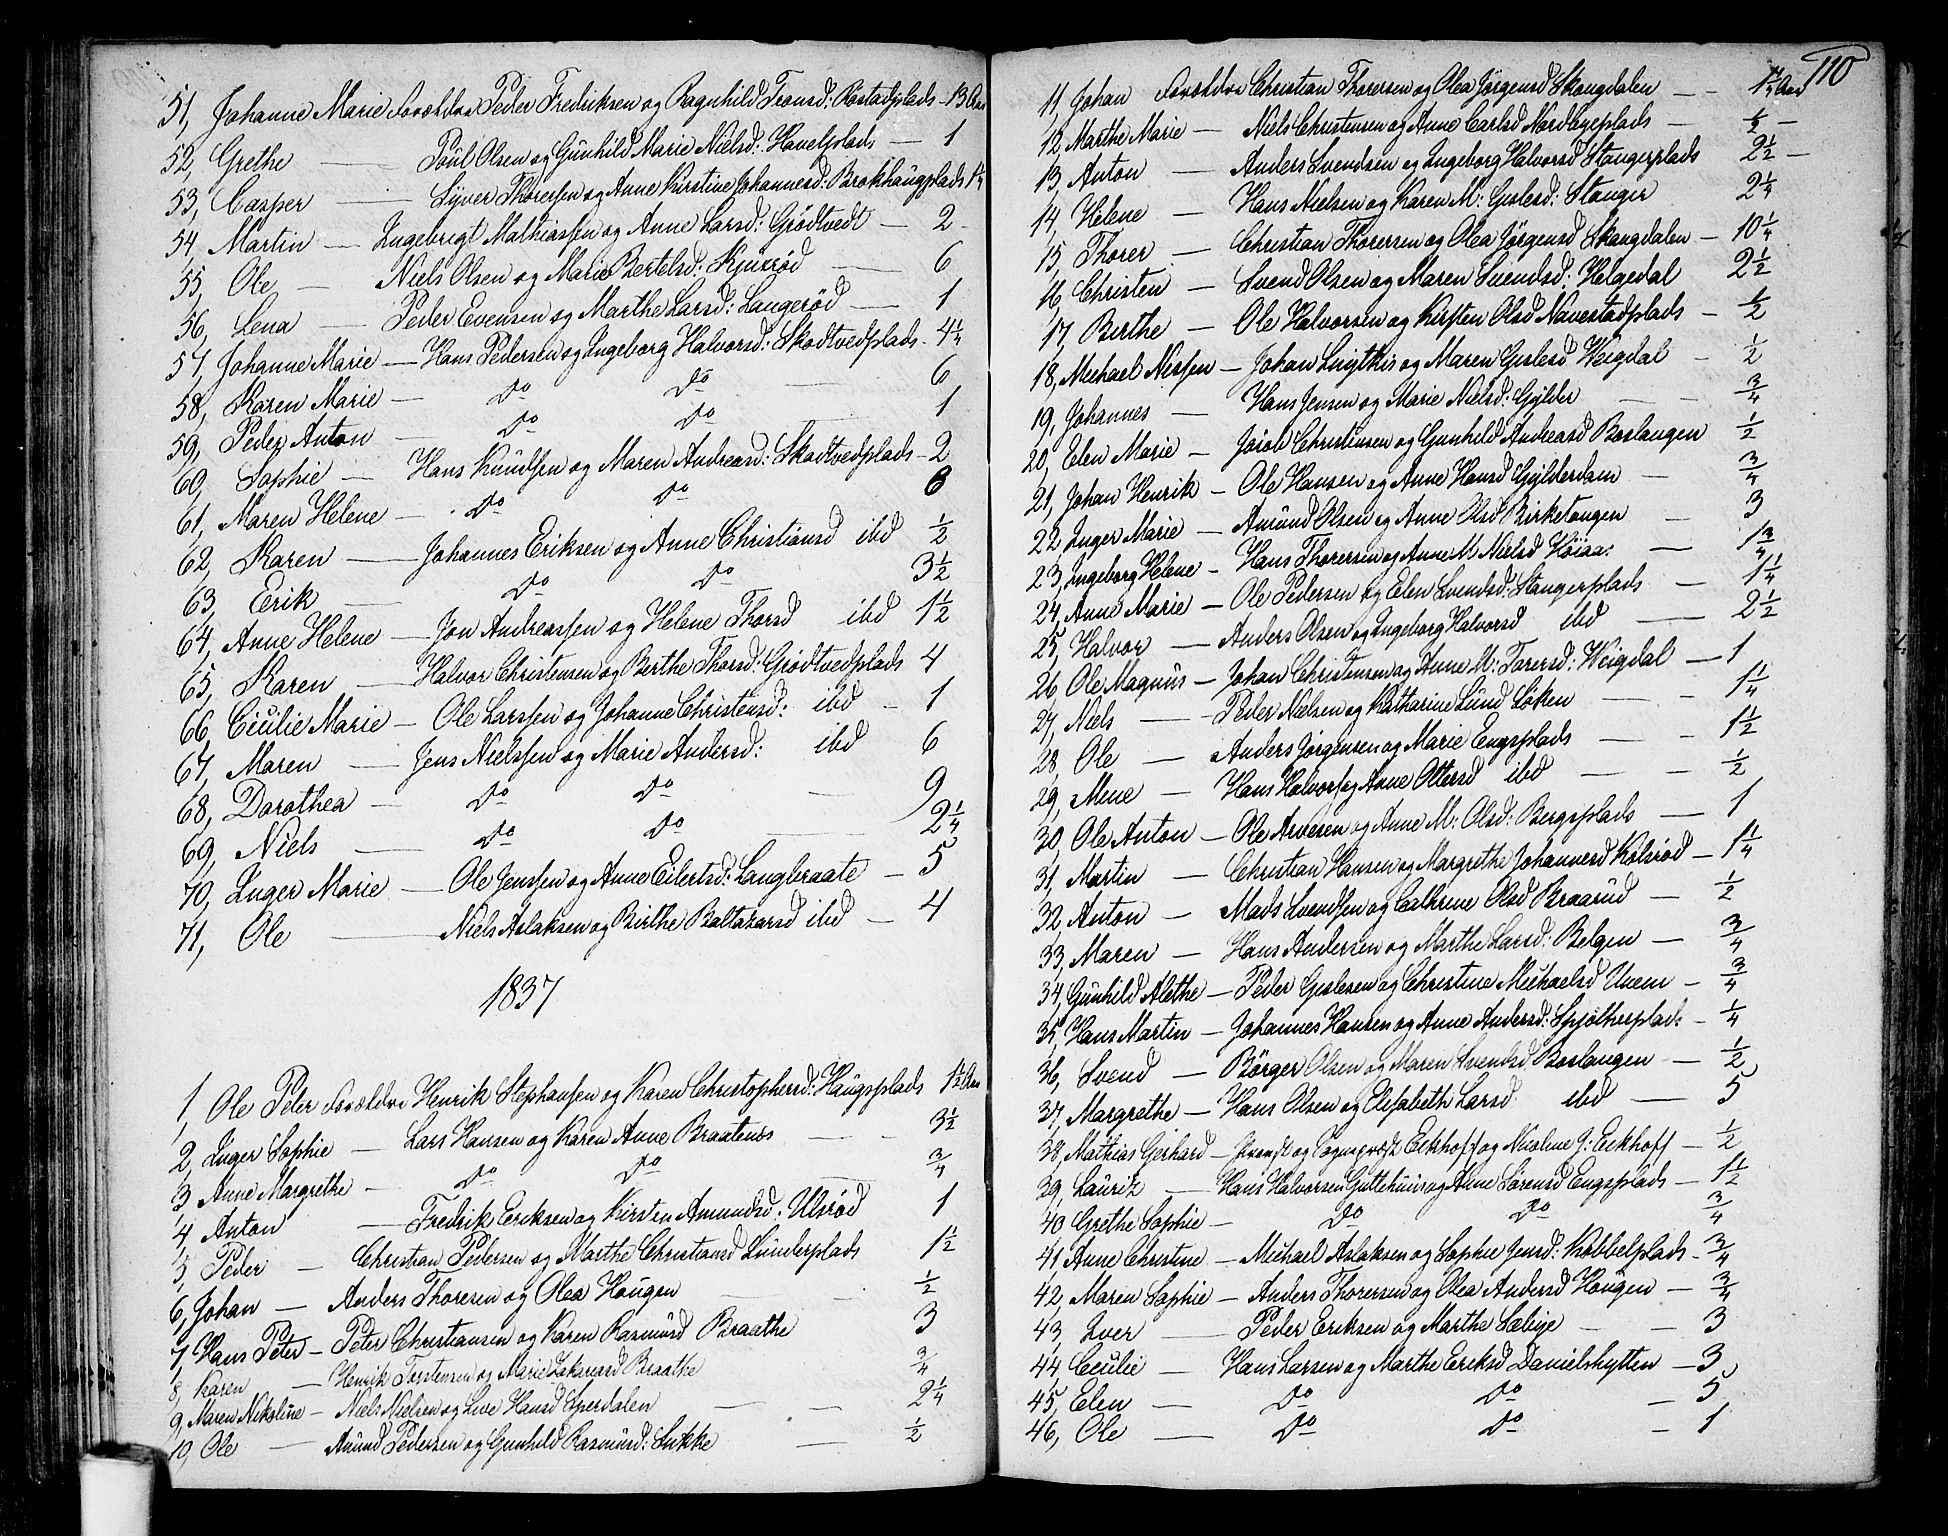 51, Johanne Marie Forældre Peder Fredriksen og Ragnhild Tronsd: Röstadplads - 13 Aar
52, Grethe — Poul Olsen og Gunhild Marie Nielsd: — 1
53, Casper — Syver Thoresen og Anne Kirstine Johannesd: Brokhaugplads 1 1/4
54, Martin — Ingebrigt Mathiassen og Anne Larsd: Grödtvedt — 2
55, Ole — Niels Olsen og Marie Bertelsd: — 6
56, Lena — Peder Evensen og Marthe Larsd: Langeröd — 1
57, Johanne Marie — Hans Pedersen og Ingeborg Halvorsd: Skodtvedplads - 4 1/4
58, Karen Marie — Do Do — 6
59, Peder Anton — Do Do — 1
60, Sophie — Hans Knudsen og Maren Andreasd: Skodtvedplads - 2
61, Maren Helene — Do Do 6
62, Karen — Johannes Eriksen og Anne Christiansd ibd 1/2
63, Erik — Do Do 3 1/2
64, Anne Helene — Jon Andreassen og Helene Thorsd ibd 1 1/2
65, Karen — Halvor Christensen og Berthe Thorsd: Grödtvedplads 4
66, Cicilie Marie — Ole Larssen og Johanne Christensd: ibd — 1
67, Maren — Jens Nielssen og Marie Andersd: ibd 6
68, Dorothea — Do Do — 9
69, Niels — Do Do — 2 1/4
70, Inger Marie — Ole Jenssen og Anne Eilertsd: Langbraate — 5
71, Ole — Niels Aslaksen og Birthe Baltazarsd ibd — 4
1837
1, Ole Peter Forældre Henrik Stephansen og Karen Christophersd: Haugsplads 1 1/2 Aar
2, Inger Sophie — Lars Hansen og Karen Anne Braatenes — 3 1/2
3, Anne Margrethe — Do Do — 3/4
4, Anton — Fredrik Eriksen og Kirsten Amundsd: Ulsröd 1
5, Peder — Christian Pedersen og Marthe Christiansd Lunderplads 1 1/2
6, Johan — Anders Thoresen og Olea Hougen — 1/2
7, Hans Peter — Peter Christiansen og Karen Rasmusd Braathe 3
8, Karen — Henrik Torstensen og Marie Zakariasd Braathe 3/4
9, Maren Nikoline — Niels Nielsen og Live Hansd — 2 1/4
10, Ole — Amund Pedersen og Gunhild Rasmusd: Sukke — 1/2
110
11, Johan Forældre Christian Thorersen og Olea Jørgensd Skougdalen — 1 1/2 Aar
12 Marthe Marie — Niels Christensen og Anne Carlsd Nordbyeplads — 1/2 —
13, Anton — Anders Svendsen og Ingeborg Halvorsd Stangerplads 2 1/2 —
14, Helene — Hans Nielsen og Karen M: Gulesd: Stanger 2 1/4
15, Thorer — Christian Thorersen og Olea Jörgensd Skougdalen — 10 1/4
16, Christen — Svend Olsen og Maren Svendsd: Helgedal 2 1/2
17, Berthe — Ole Halvorsen og Kirsten Olsd Navestadplads — 1/2
18, Michael Nessen — Johan og Maren Gulesd Weigdal — 1/2
19, Johannes — Hans Jensen og Marie Nielsd: Gylder — 3/4
20, Elen Marie — Jacob Christensen og Gunhild Andreasd Boslangen 1/2
21, Johan Henrik — Ole Hansen og Anne Hansd Gylderdam — 3/4
22 Inger Marie — Amund Olsen og Anne Olsd Birketangen — 3
23, Ingeborg Helene — Hans Thorersen og Anne M Nielsd Höiaas — 1 3/4
24, Anne Marie — Ole Pedersen og Elen Svendsd: Stangerplads — 1 1/4
25, Halvor — Anders Olsen og Ingeborg Halvorsd ibd — 2 1/2
26 Ole Magnus — Johan Christensen og Anne M: Torersd: Weigdal — 1
27, Niels — Peder Nielsen og Katharine Lund Söken — 1 1/4
28 Ole — Anders Jørgensen og Marie Engsplads — 1 1/2
29, Mene — Hans Halvors og Anne Ottersd ibd — 1/2
30, Ole Anton — Ole Arvesen og Anne M: Olsd: Bergsplads — 1
31, Martin — Christian Hansen og Margrethe Johannesd Kolsröd — 1 1/4
32, Anton — Mads Svendsen og Cathrine Olsd Braarud — 1/2
33, Maren — Hans Andersen og Marthe Larsd: Belgen — 3/4
34, Gunhild Alethe — Peder Gulesen og Christine Michaelsd Unem — 3/4
35, Hans Martin — Johannes Hansen og Anne Andersd: Spjötherplads 1/4
36, Svend — Börger Olsen og Maren Svendsd Boslangen — 1/2
37, Margrethe — Hans Olsen og Elisabeth Larsd ibd — 5
38, Mathias Gerhard — og Sognepræst Eckhoff og Nicoline J: Eckhoff — 1/2
39, Lauritz — Hans Halvorsen Guttehuus og Anne Sörensd Engsplads — 1 1/2
40 Grethe Sophie — Do Do 3/4
41 Anne Christine — Michael Aslaksen og Sophie Jensd: Kobbelplads — 3/4
42, Maren Sophie — Anders Thorersen og Olea Andersd Hougen — 3/4
43, Iver — Peder Eriksen og Marthe Sæbye — 3
44 Cecilie — Hans Larsen og Marthe Eriksd Danielshytten — 3
45, Elen — Do Do — 5
46, Ole — Do Do — 1